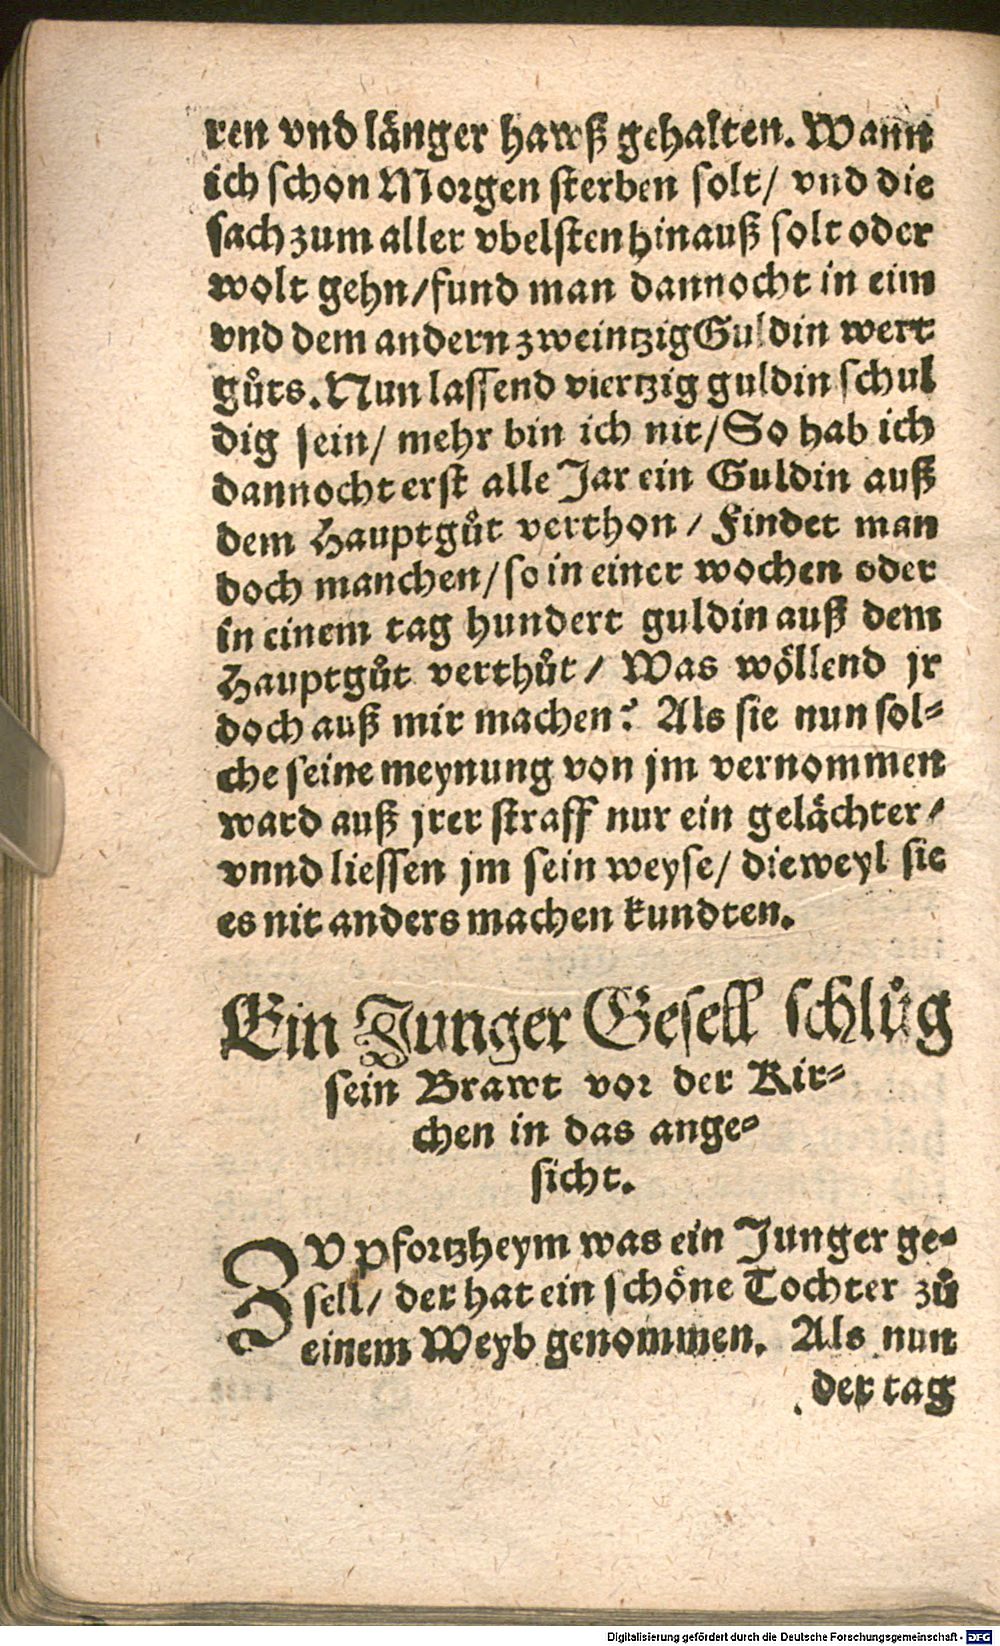 ren vnd länger hawß gehalten. Wann
ich schon Morgen sterben solt/ vnd die
sach zum aller vbelsten hinauß solt oder
wolt gehn/ fund man dannocht in eim
vnd dem andern zweintzig Guldin wert
guͦts. Nun lassend viertzig guldin schul
dig sein/ mehr bin ich nit/ So hab ich
dannocht erst alle Jar ein Guldin auß
dem Hauptguͦt verthon/ Findet man
doch manchen/ so in einer wochen oder
in einem tag hundert guldin auß dem
Hauptguͦt verthuͦt/ Was wöllend jr
doch auß mir machen? Als sie nun sol-
che seine meynung von jm vernommen
ward auß jrer straff nur ein gelächter/
vnnd liessen jm sein weyse/ dieweyl sie
es nit anders machen kundten.
Ein Junger Gesell schluͦg
sein Brawt vor der Kir-
chen in das ange-
sicht.
ZV Pfortzheym was ein Junger ge-
sell/ der hat ein schöne Tochter zuͦ
einem Weyb genommen. Als nun
der tag
Digitalisierung gefördert durch die Deutsche Forschungsgemeinschaft - DFG